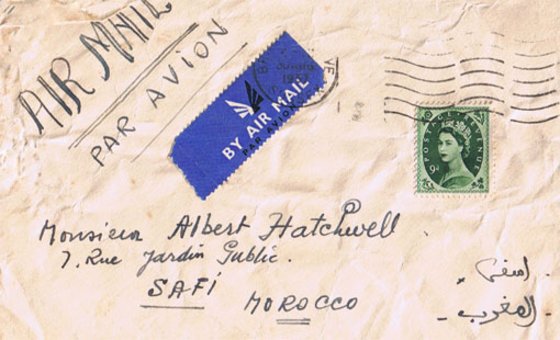 AIR MAIL
PAR AVION
BY AIR MAIL
PAR AVION
POSTAGE REVENUE
9D
Monsieur Albert Hatchwell
7. Rue Jardin Public.
SAFI
MOROCCO
اسفي
المغرب